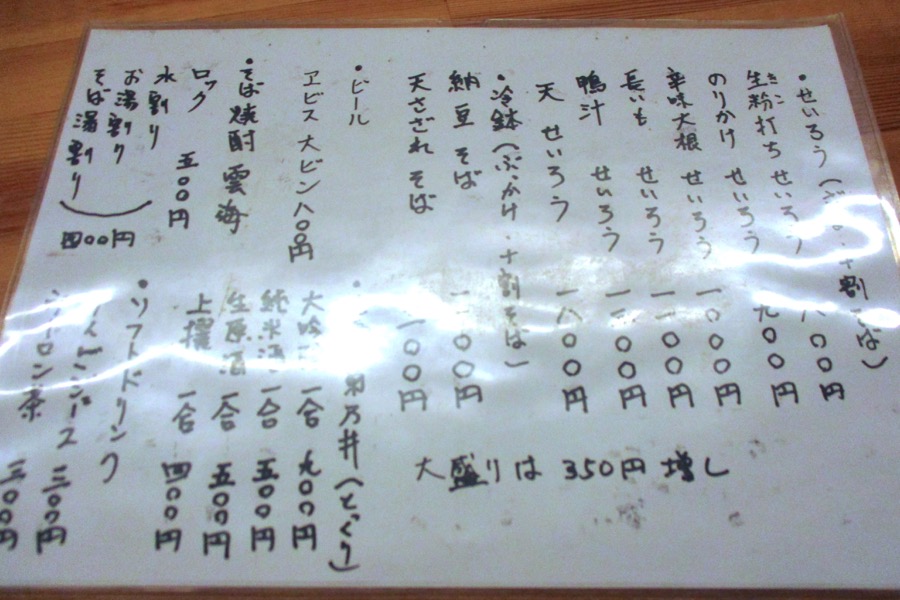 ・せいろう（ 十割そば） 八〇〇円
生粉打ち せいろう 九〇〇円
きこ
のりかけ せいろう 一〇〇〇円
辛味大根 せいろう 一〇〇〇円
長いも せいろう
鴨汁 せいろう
天 せいろう 一八〇〇円
・冷鉢（ぶっかけ・十割そば）
納豆 そば
天さざれ そば
大盛りは 350円 増し
・ビール
ヱビス 大ビン 八〇〇円
・そば焼酎 雲海
ロック 五〇〇円
水割り
お湯割り
そば湯割り） 四〇〇円
菊乃井（とっくり）
大吟 一合 九〇〇円
純米酒 一合 五〇〇円
生原酒 一合 五〇〇円
上撰 一合 四〇〇円
・ソフトドリンク
三〇〇円
ウーロン茶 三〇〇円